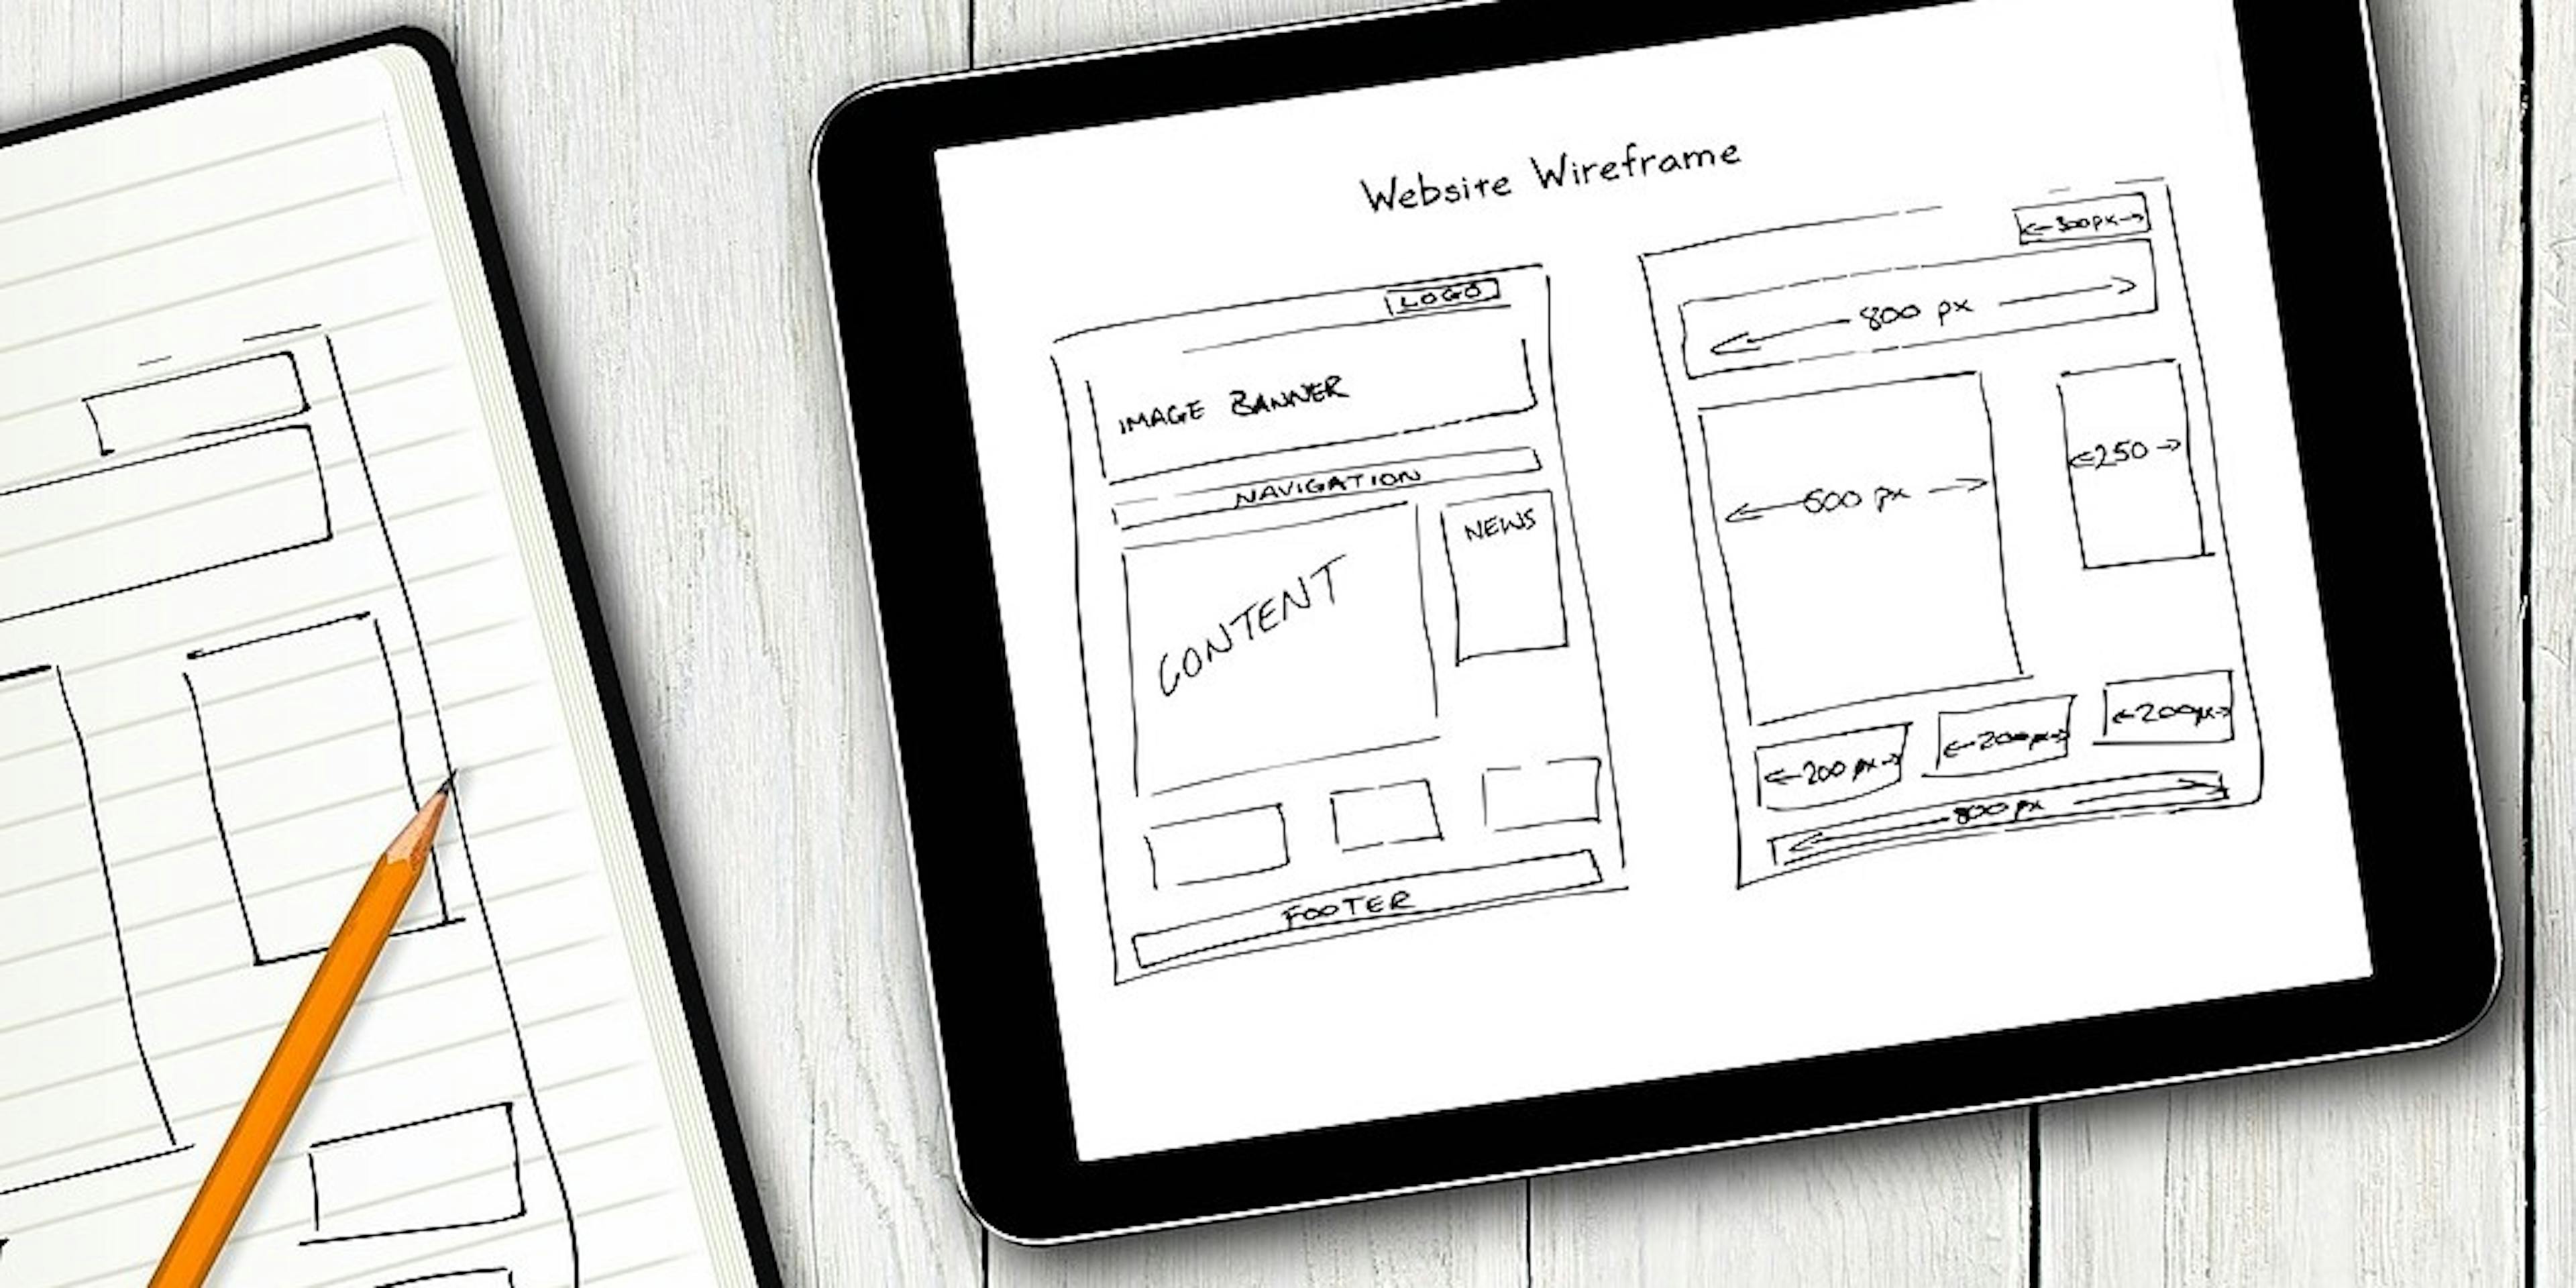 Website Wireframe
LOGO
IMAGE BANNER
NAVIGATION
CONTENT
NEWS
FOOTER
300px
800 px
600 px
250
200 px
200px
200px
800 px